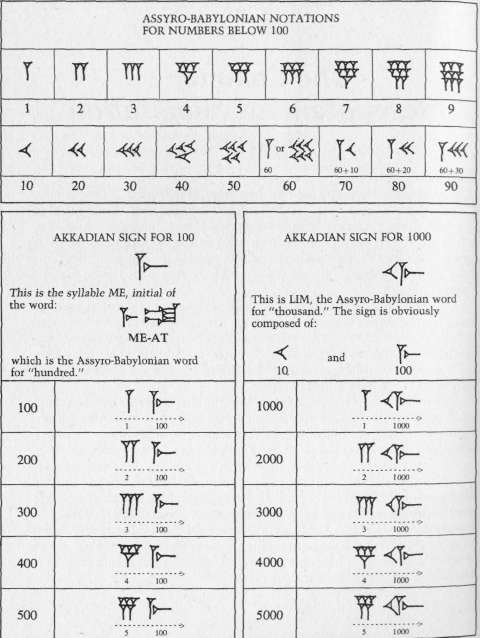 ASSYRO-BABYLONIAN NOTATIONS
FOR NUMBERS BELOW 100
1 2 3 4 5 6 7 8 9
or
60 60+10 60+20 60+30
10 20 30 40 50 60 70 80 90
AKKADIAN SIGN FOR 100
This is the syllable ME, initial of
the word:
ME-AT
which is the Assyro-Babylonian word
for "hundred."
100
1 100
200
2 100
300
3 100
400
4 100
500
5 100
AKKADIAN SIGN FOR 1000
This is LIM, the Assyro-Babylonian word
for "thousand." The sign is obviously
composed of:
and
10 100
1000
1 1000
2000
2 1000
3000
3 1000
4000
4 1000
5000
5 1000